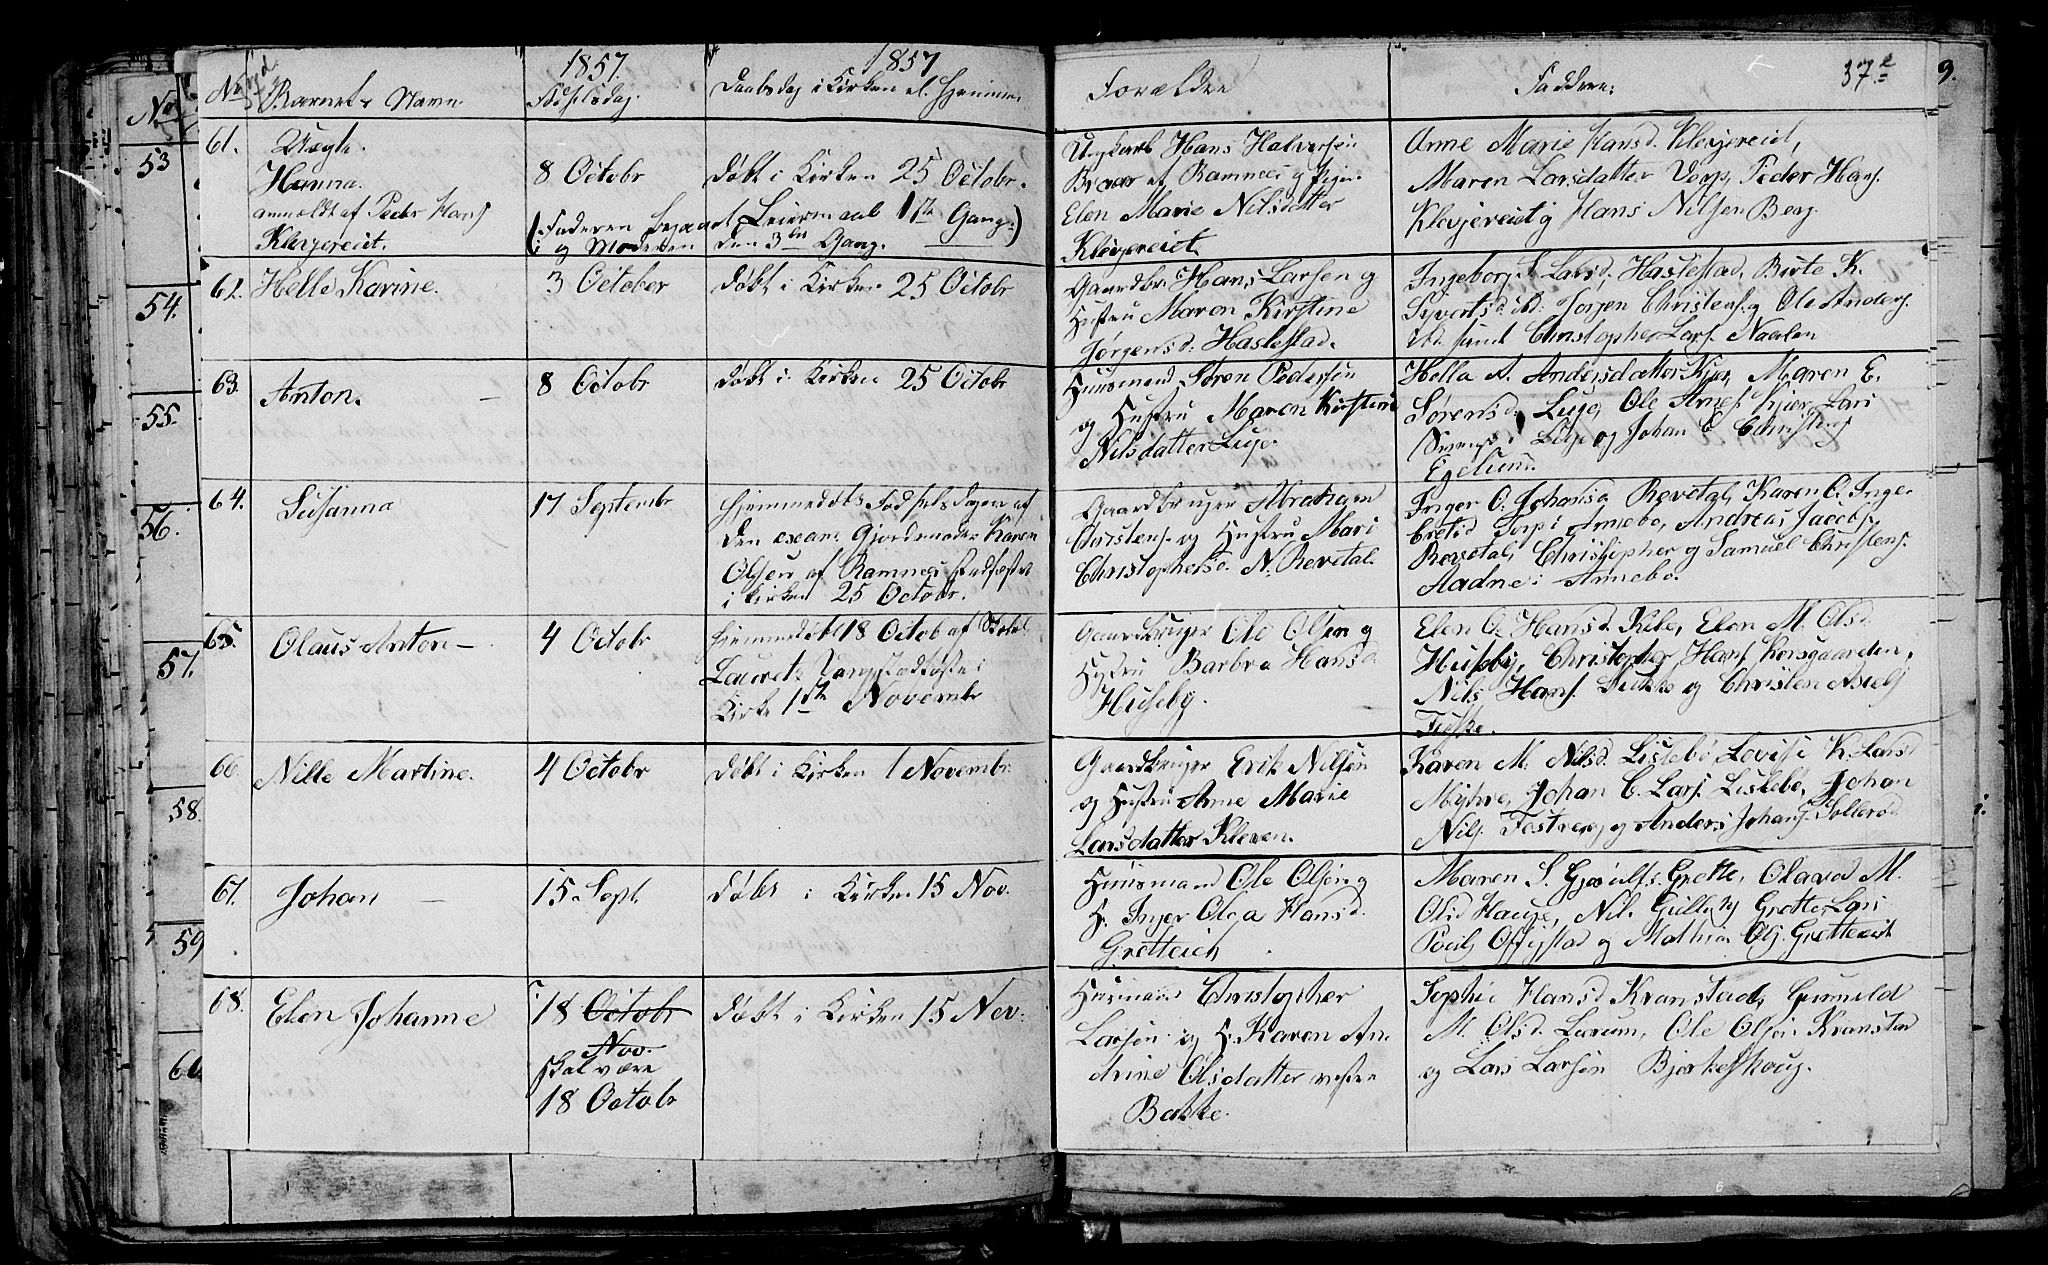 No
53
54.
55.
56.
57.
58.
59
60
1857.
1857
37
9.
No Barnets Navn.
Fødselsdag.
Daabsdag i Kirken el. Hjemme
Forældre
Faddere.
61. Uægte.
Hanna.
anmeldt af Peder Hans
Klevjereiet.
8 Octobr
Døbt i Kirken 25 Octobr.
(Faderen begaaet Leiermaal 1ste Gang
og Moderen den 3die Gang.)
Ungkarl Hans Halvorsen
af Ramnes og Pigen
Elen Marie Nilsdatter
Klevjereiet.
Anne Marie Hansd. Klevjereiet,
Maren Larsdatter Vorp, Peder Hans.
Klevjereiet og Hans Nilsen Berg.
62. Helle Karine.
3 October
Døbt i Kirken 25 Octobr
Gaardbr. Hans Larsen og
Hustru Maren Kirstine
Jørgensd. Haslestad.
Ingeborg S. Larsd. Haslestad, Birte K.
Syvertsd. ibd. Jorgen Christens. og Ole Anders.
ibd. samt Christopher Lars. Naalen
63. Anton.
8 Octobr
Døbt i Kirken 25 Octobr
Huusmand Søren Pedersen
og Hustru Maren Kirstine
Nilsdatter Luge.
Hella A. Andersdatter Kjær, Maren E.
Sørensd. Luge, Ole Arnes. Kjær, Lars
Sørens. Luge og Johan E. Christens.
Egelund.
64. Susanna
17 Septembr
Hjemmedøbt Fødselsdagen af
den exam. Gjordemoder Karen
Olsen af Ramnes, Stadfæstet
i Kirken 25 Octobr.
Gaardbruger Abraham
Christens. og Hustru Mari
Christophersd. N. Revetal.
Inger O. Johansd. Revetal, Karen O. Inge-
bretsd. Torp i Arnebo, Andreas Jacobs.
Revetal, Christopher og Samuel Christens.
Aadne i Arnebo.
65. Olaus Anton
4 Octobr
Hjemmedøbt 18 Octob af
Laurets Vang stadfæstet i
Kirke 1ste Novembr
Gaardbruger Ole Olsen og
Hustru Barbra Hansd.
Huseby.
Elen O. Hansd. Kile, Elen M. Olsd.
Huseby, Christopher Hans. Korsgaarden,
Nils Hans. Bakke og Christen Axels.
66. Nille Martine.
4 Octobr
Døbt i Kirken 1 Novembr.
Gaardbruger Erik Nilsen
og Hustru Anne Marie
Larsdatter Kleven.
Karen M. Nilsd. Liskebo, Lovise K. Larsd
Myhre, Johan C. Lars. Liskebo, Johan
Nils. Festvegg og Anders Johans. Sollerød
67. Johan
15 Sept.
Døbt i Kirken 15 Nov.
Huusmand Ole Olsen og
H. Inger Olea Hansd.
Gretteeich
Maren S. Gjerulfs. Grette, Olava M.
Olsd Hauge, Nils Gulls. Grette, Lars
Poels. Offigstad og Mathias Ols. Gretteeiet
68. Elen Johanne
18 Octobr
Nov.
skal være
18 Octobr
Døbt i Kirken 15 Nov.
Husmand Christopher
Larsen og H. Karen An-
drine Olsdatter vestre
Bakke.
Sophie Hansd Kranstad, Gunnild
M. Olsd. Lurum, Ole Olsen Kranstad
og Lars Larsen Bjerkeskoug.